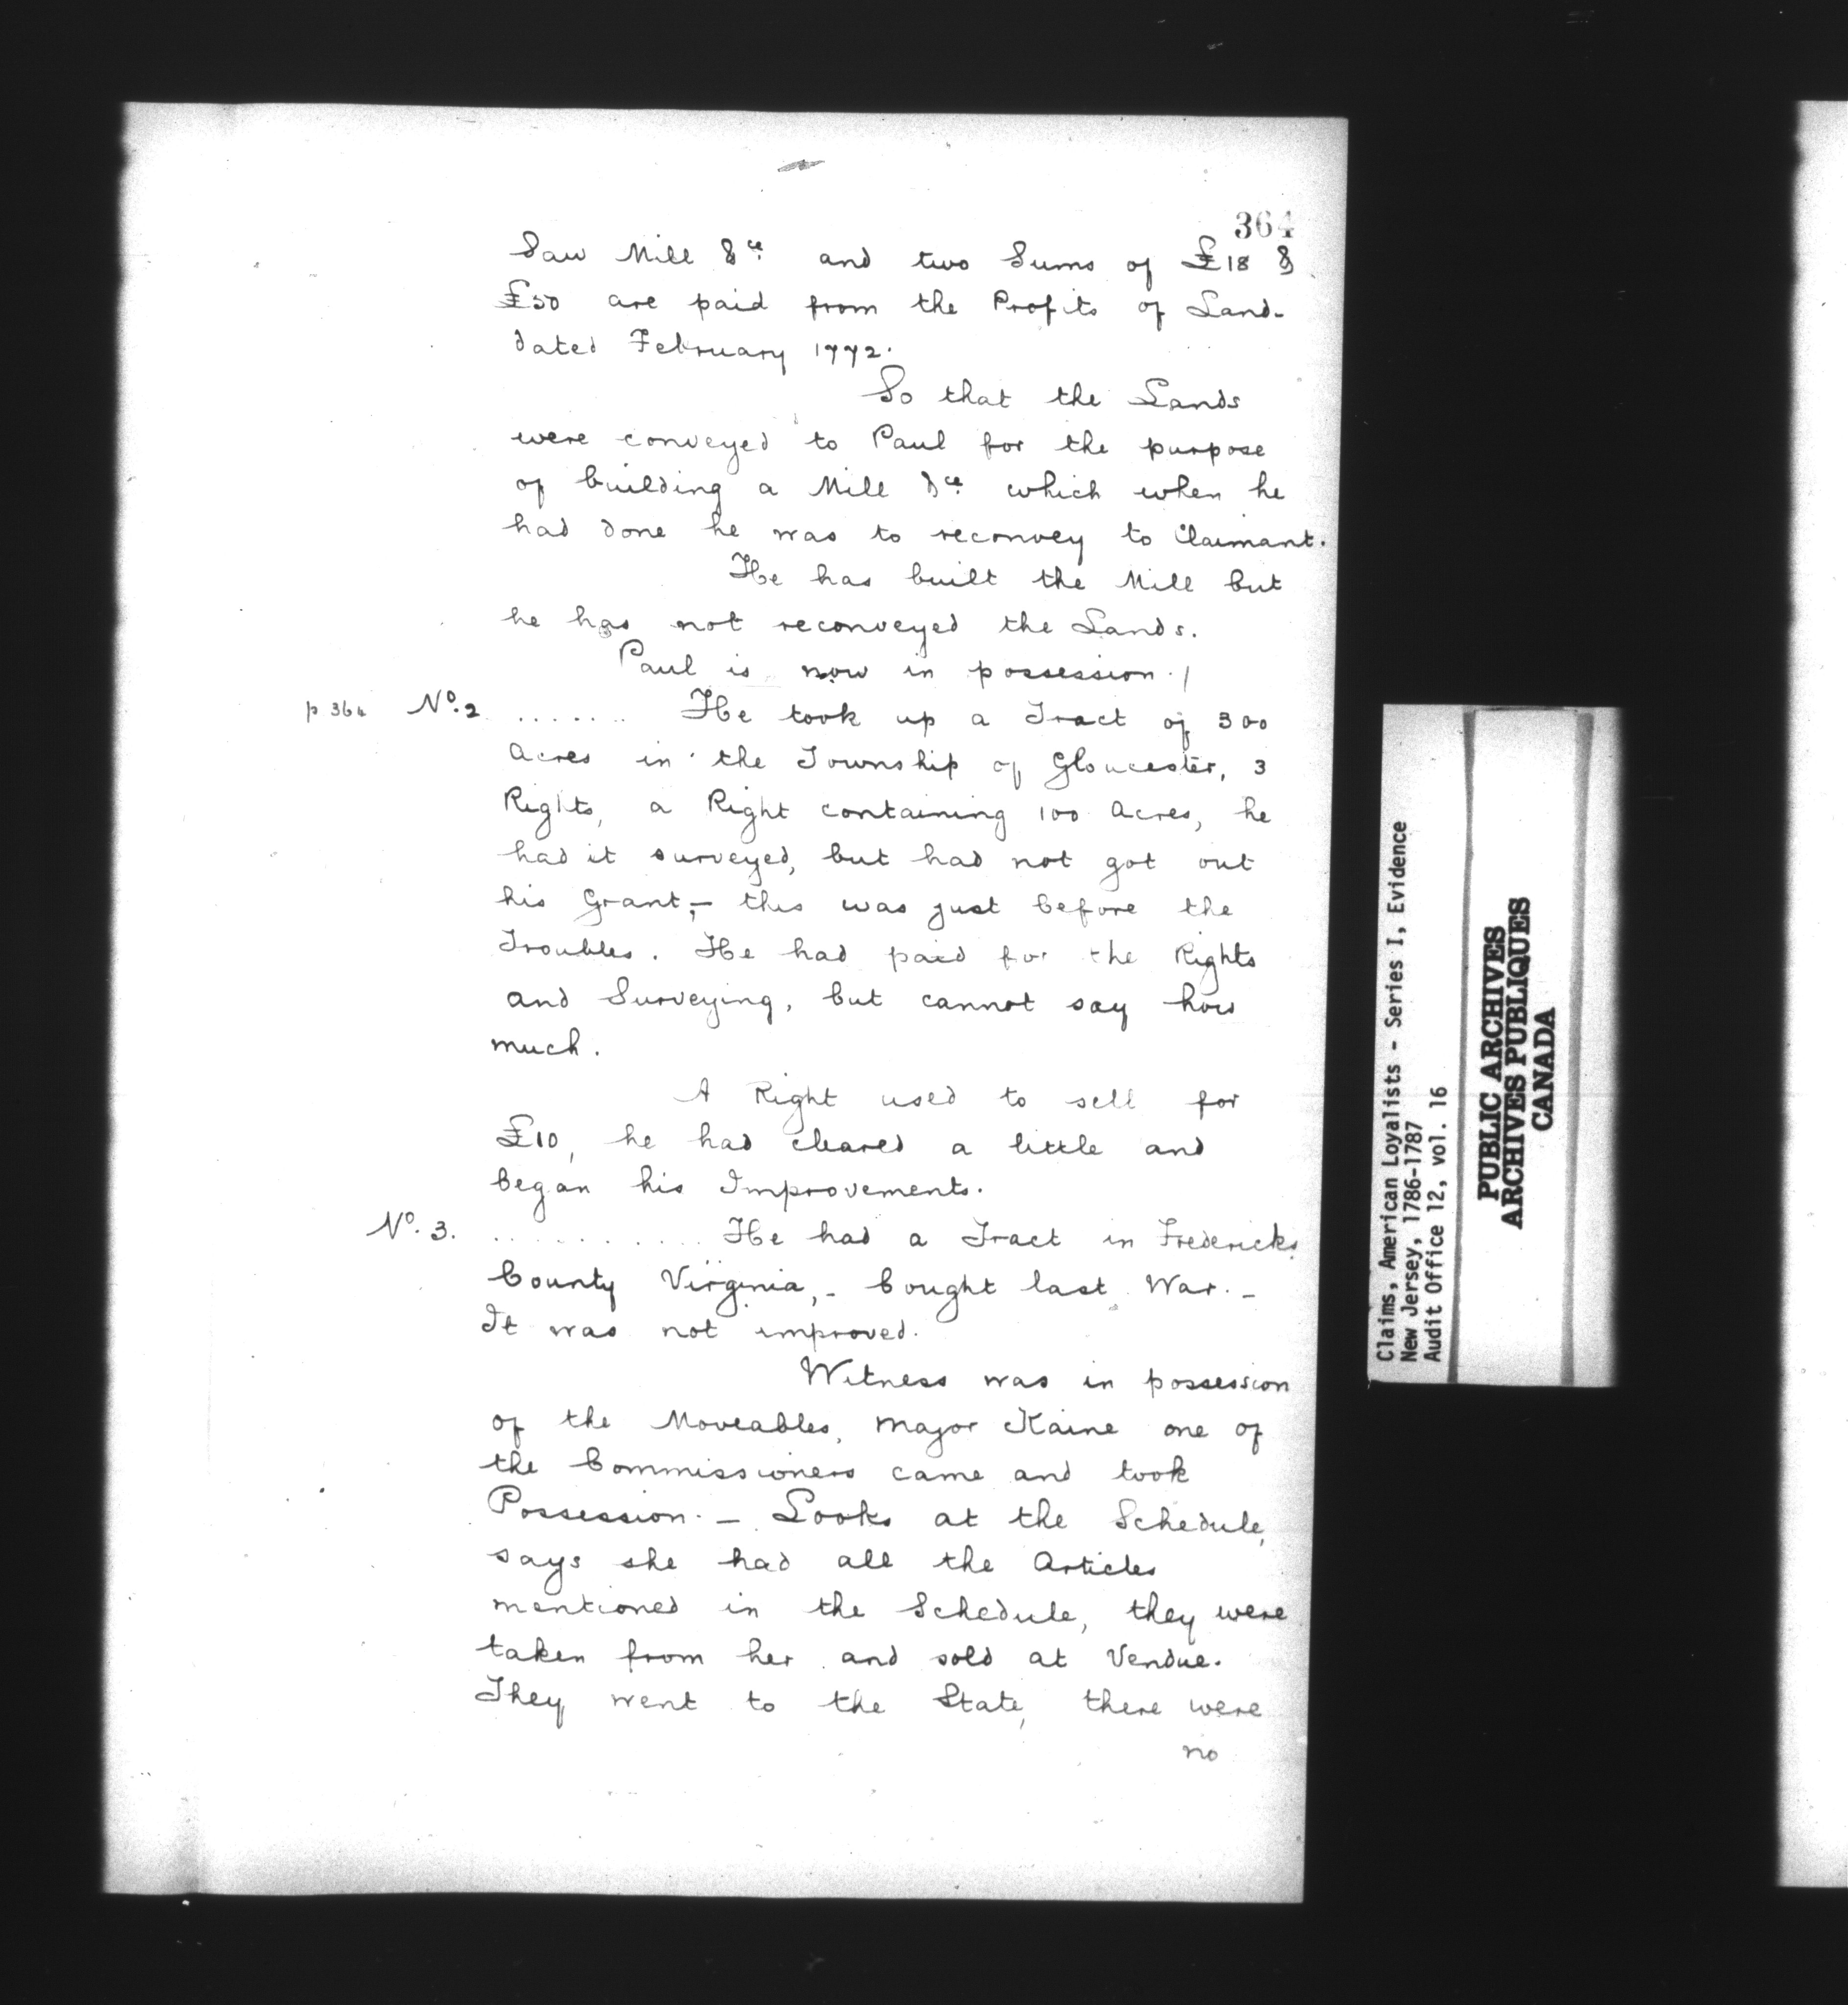 364
Saw Mill &ce. and two Sums of £18 &
£50 are paid from the Profits of Land-
dated February 1772.
So that the Lands
were conveyed to Paul for the purpose
of building a Mill &ce. which when he
had done he was to reconvey to Claimant.
He has built the Mill but
he has not reconveyed the Lands.
Paul is now in possession. /
p 364 No. 2 ....... He took up a Tract of 300
Acres in the Township of Gloucester, 3
Rights, a Right containing 100 Acres, he
had it surveyed, but had not got out
his Grant,- this was just before the
Troubles. He had paid for the Rights
and Surveying, but cannot say how
much.
A Right used to sell for
£10, he had cleared a little and
began his Improvements.
No. 3. ........... He had a Tract in Fredericks
County Virginia,- bought last War. -
It was not improved.
Witness was in possession
of the Moveables, Major Kaine one of
the Commissioners came and took
Possession. - Looks at the Schedule,
says she had all the Articles
mentioned in the Schedule, they were
taken from her and sold at Vendue.
They went to the State, there were
no
Claims, American Loyalists - Series I, Evidence
New Jersey, 1786-1787
Audit Office 12, vol. 16
PUBLIC ARCHIVES
ARCHIVES PUBLIQUES
CANADA